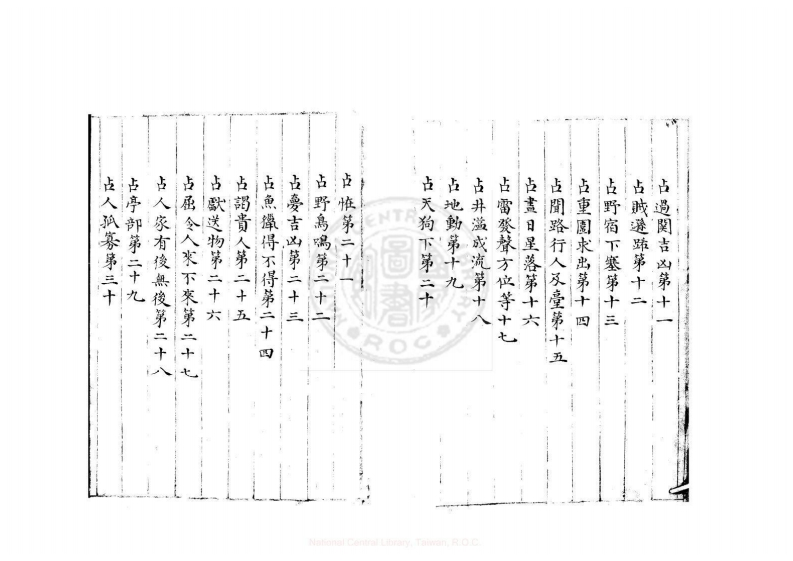 占過関吉凶第十一
占賊遯跡第十二
占野宿下塞第十三
占重圍求出第十四
占聞路行人及臺第十五
占晝日星落第十六
占雷發聲方位等十七
占井溢成流第十八
占地動第十九
占天狗下第二十
占恠第二十一
占野鳥鳴第二十二
占憂吉凶第二十三
占魚獵得不得第二十四
占謁貴人第二十五
占獻送物第二十六
占屈令人來不來第二十七
占人家有後無後第二十八
占亭部第二十九
占人孤寡第三十
NATIONAL CENTRAL LIBRARY
R.O.C.
National Central Library, Taiwan, R.O.C.